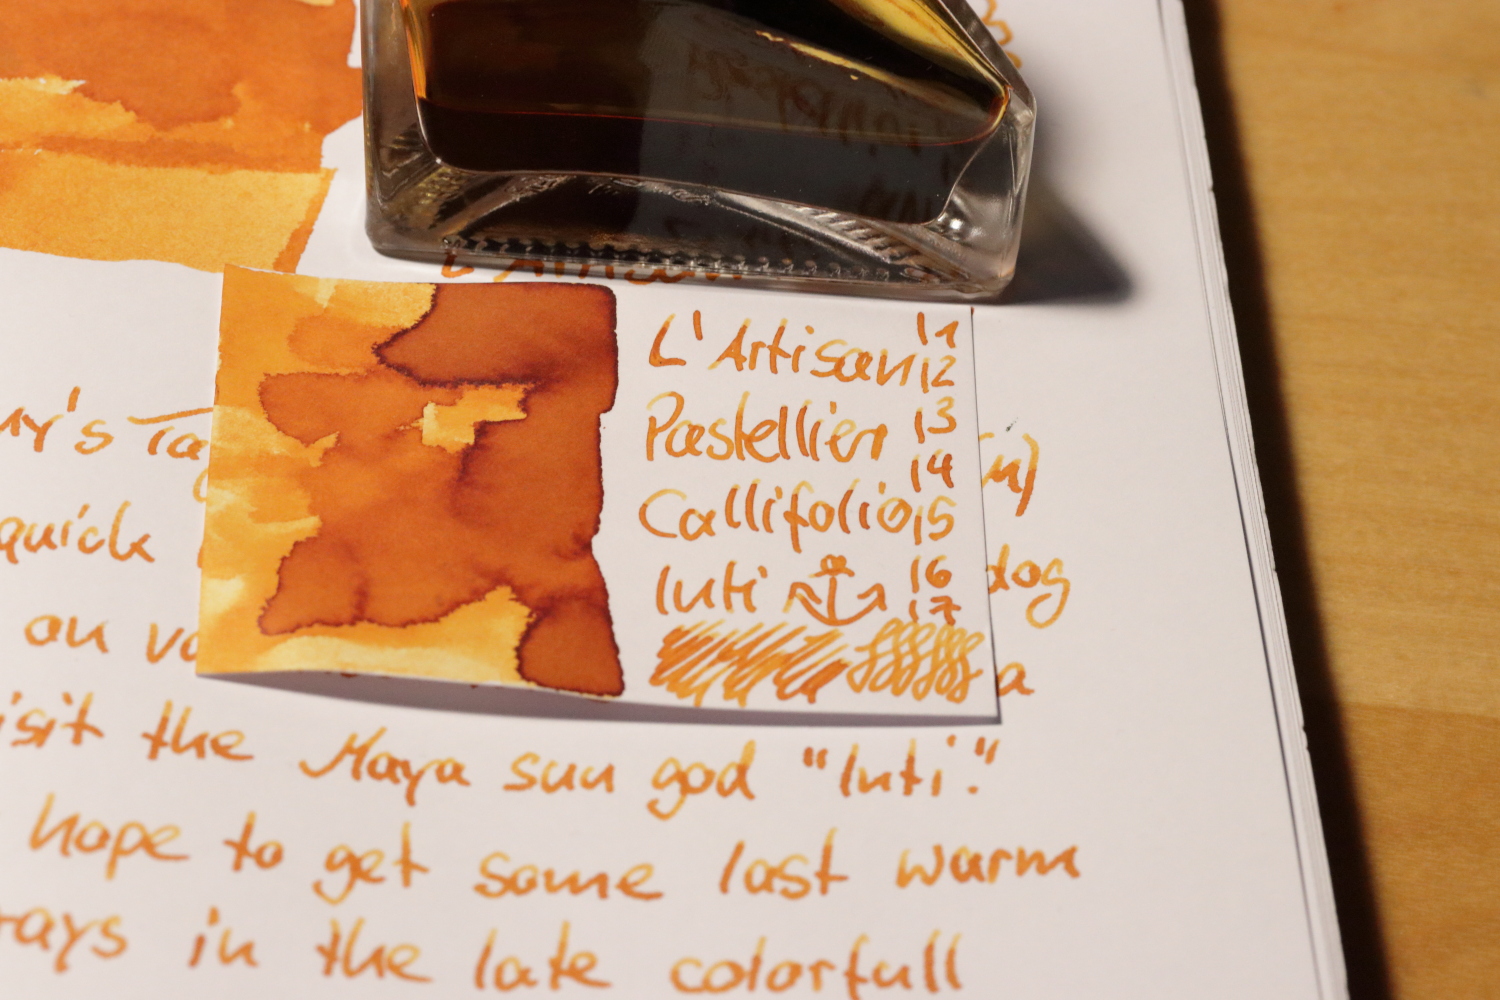 L'Artisan
L'Artisan
Pastellier
Callifolio
Inti
11
12
13
14
15
16
17
quick
dog
on
a
the Maya sun god "Inti".
hope to get some last warm
rays in the late colorfull